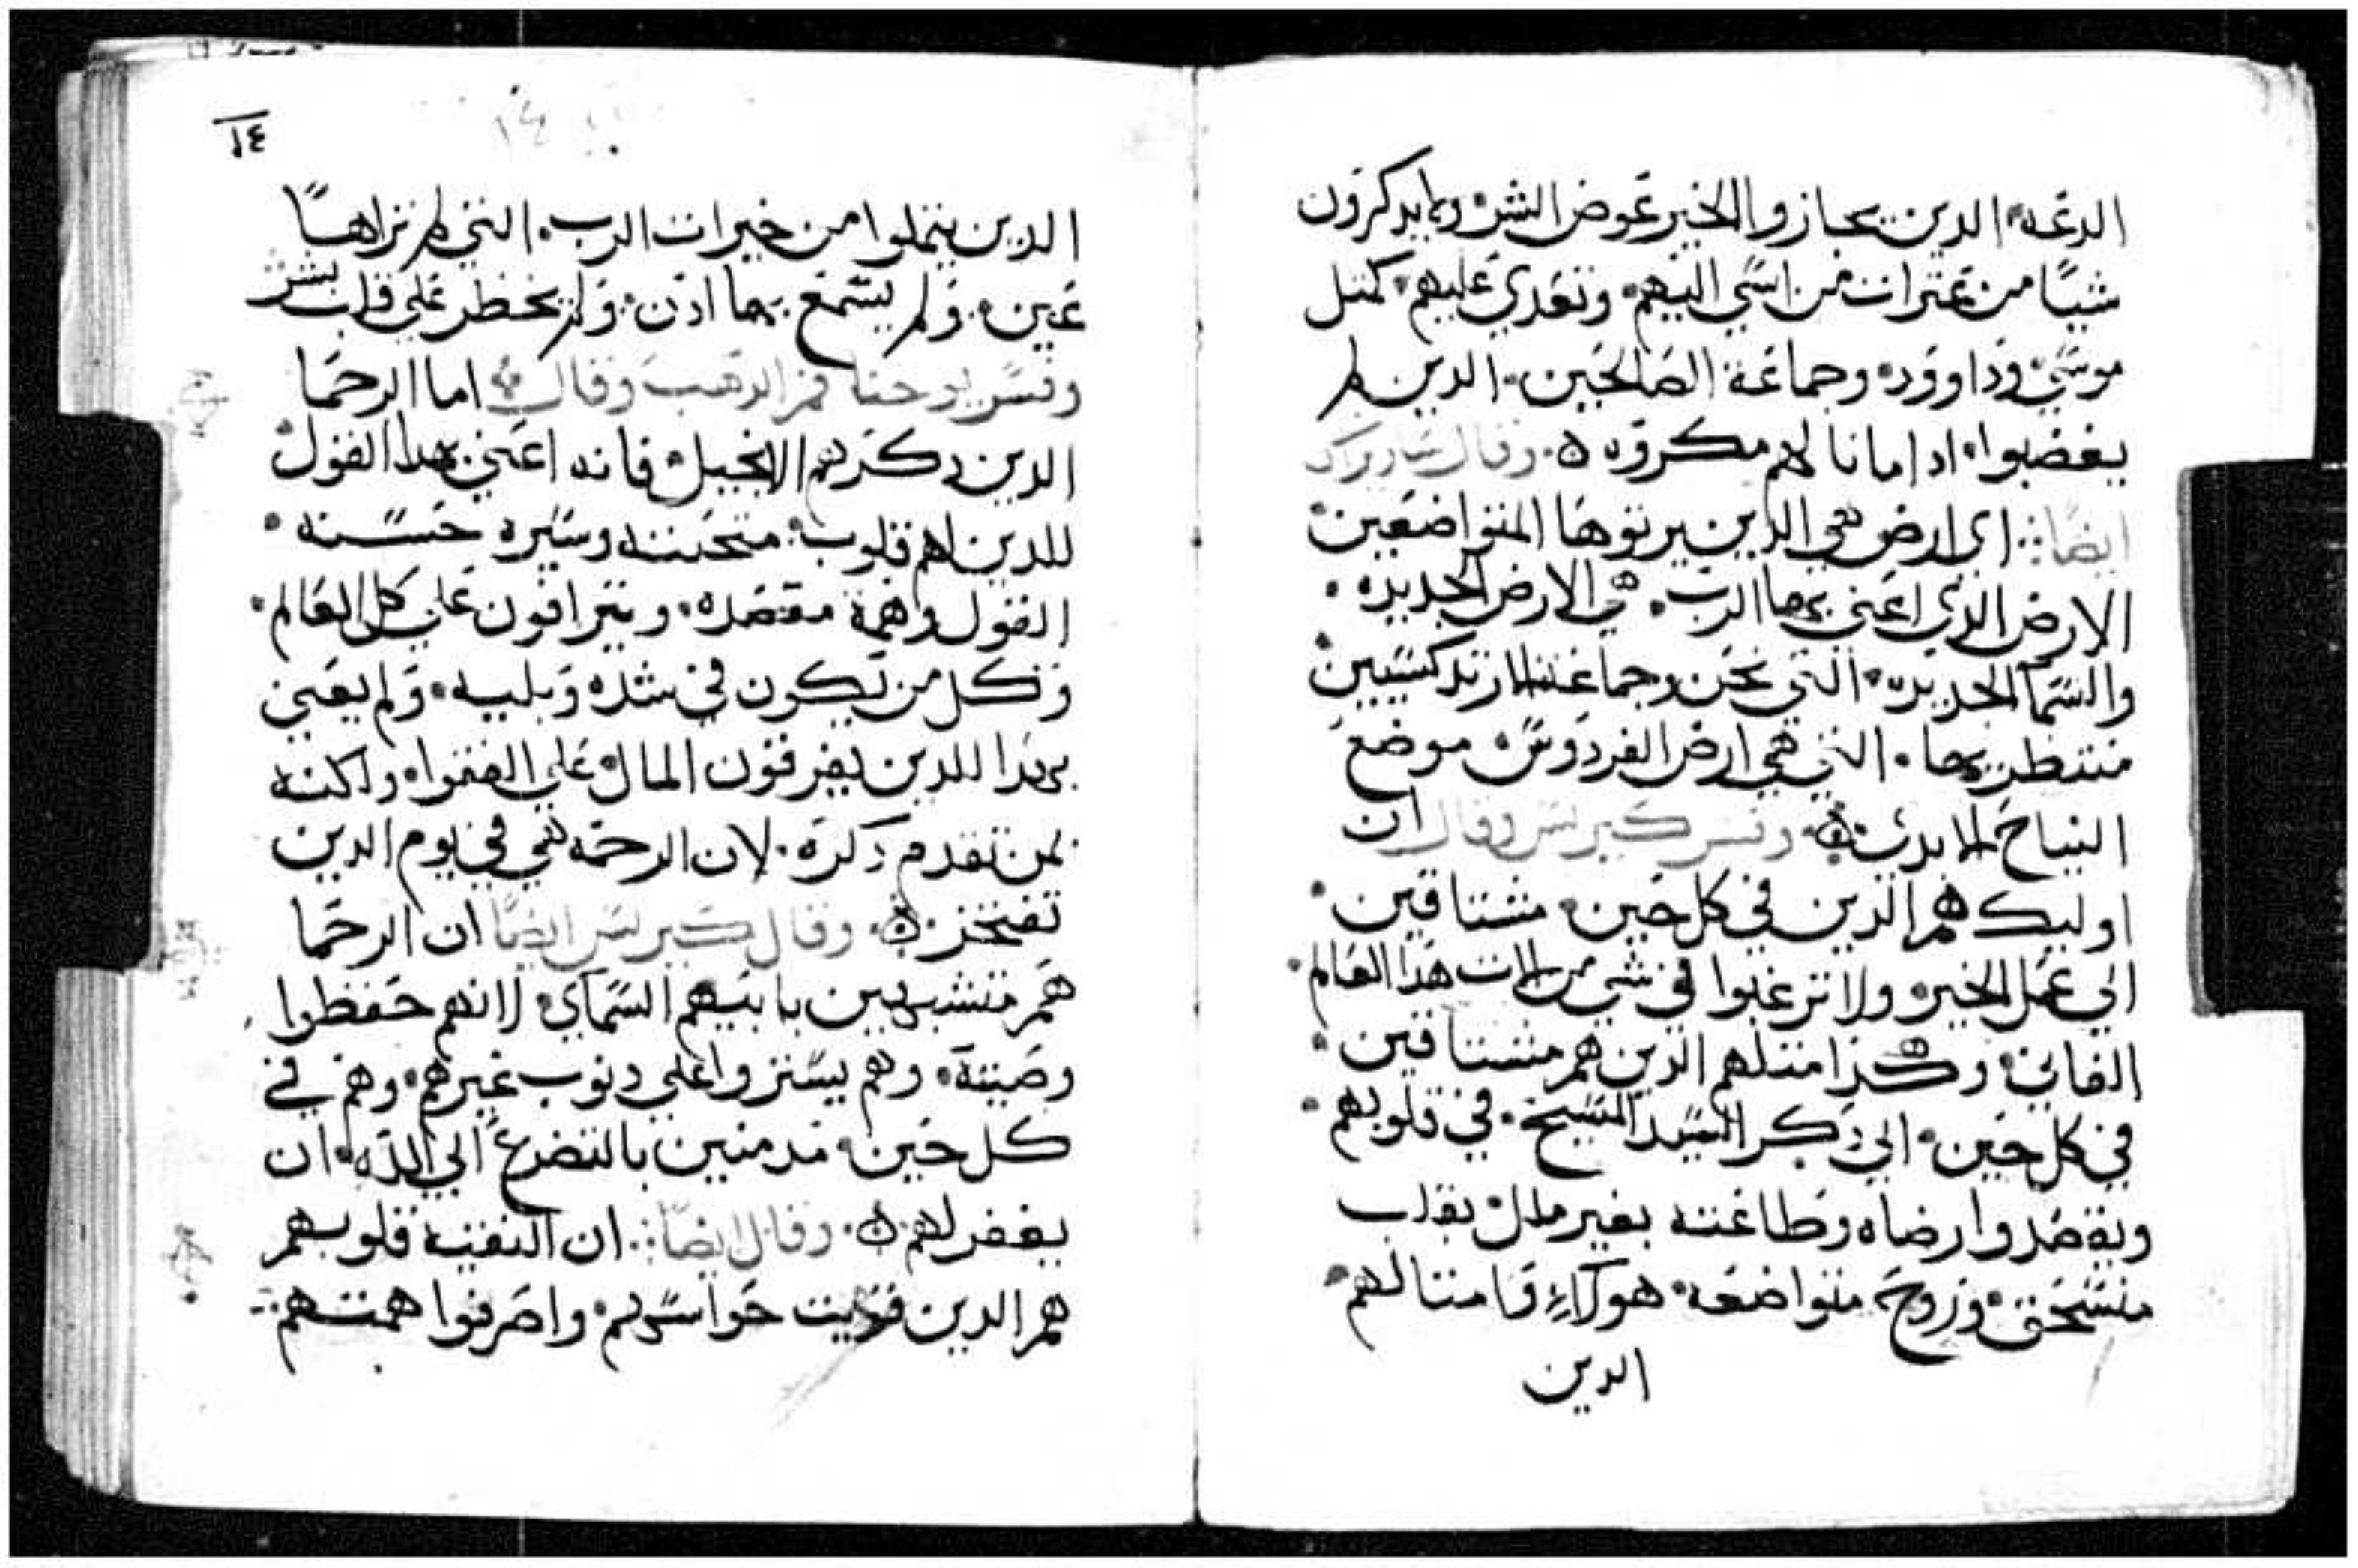 الدعه الدين يجازوا الخير عوض الشر ولم يدكرون
شيًا من عترات من اسي اليهم وتعدي عليهم كمتل
موسي وداوود وجماعة الصالحين الدين لم
يغضبوا ادا ما نالهم مكروه وقال
ايضًا اي ارض هي الدين يرتوها المتواضعين
الارض الدي اعني بها الرب هي الارض الجديده
والسما الجديده التي نحن وجماعتنا الارتدكسيين
منتظرين بها التي هي ارض الفردوس موضع
النياح الابدي وفسر كيرلس وقال ان
اوليك هم الدين في كل حين مشتاقين
الي عمل الخير ولا ترغبوا في شي من لدات هدا العالم
الفاني وهكدا متلهم الدين هم مشتاقين
في كل حين الي دكر السيد المسيح في قلوبهم
ويقصدوا رضاه وطاعته بغير ملل بقلب
منسحق وروح متواضعه هولاء وامتالهم
الدين
١٤
الدين يتملوا من خيرات الرب التي لم تراها
عين ولم يسمع بها ادن ولم يخطر علي قلب بشر
وفسر يوحنا فم الدهب وقال اما الرحما
الدين دكرهم الانجيل فانه اعني بهدا القول
للدين لهم قلوب متحننه وسيره حسنه
القول وهمة مقصده ويترافون علي كل العالم
وكل من يكون في شده وبليه ولم يعني
بهدا للدين يفرقون المال علي الفقرا ولكنه
لمن تقدم دكره لان الرحمه هي في يوم الدين
تفتخر وقال كيرلس ايضًا ان الرحما
هم متشبهيين بابيهم السماي لانهم حفظوا
وصيته وهم يستروا علي دنوب غيرهم وهم في
كل حين مدمنين بالتضرع الي الله ان
يغفر لهم وقال ايضًا ان النقيه قلوبهم
هم الدين حواسهم واصرفوا همتهم